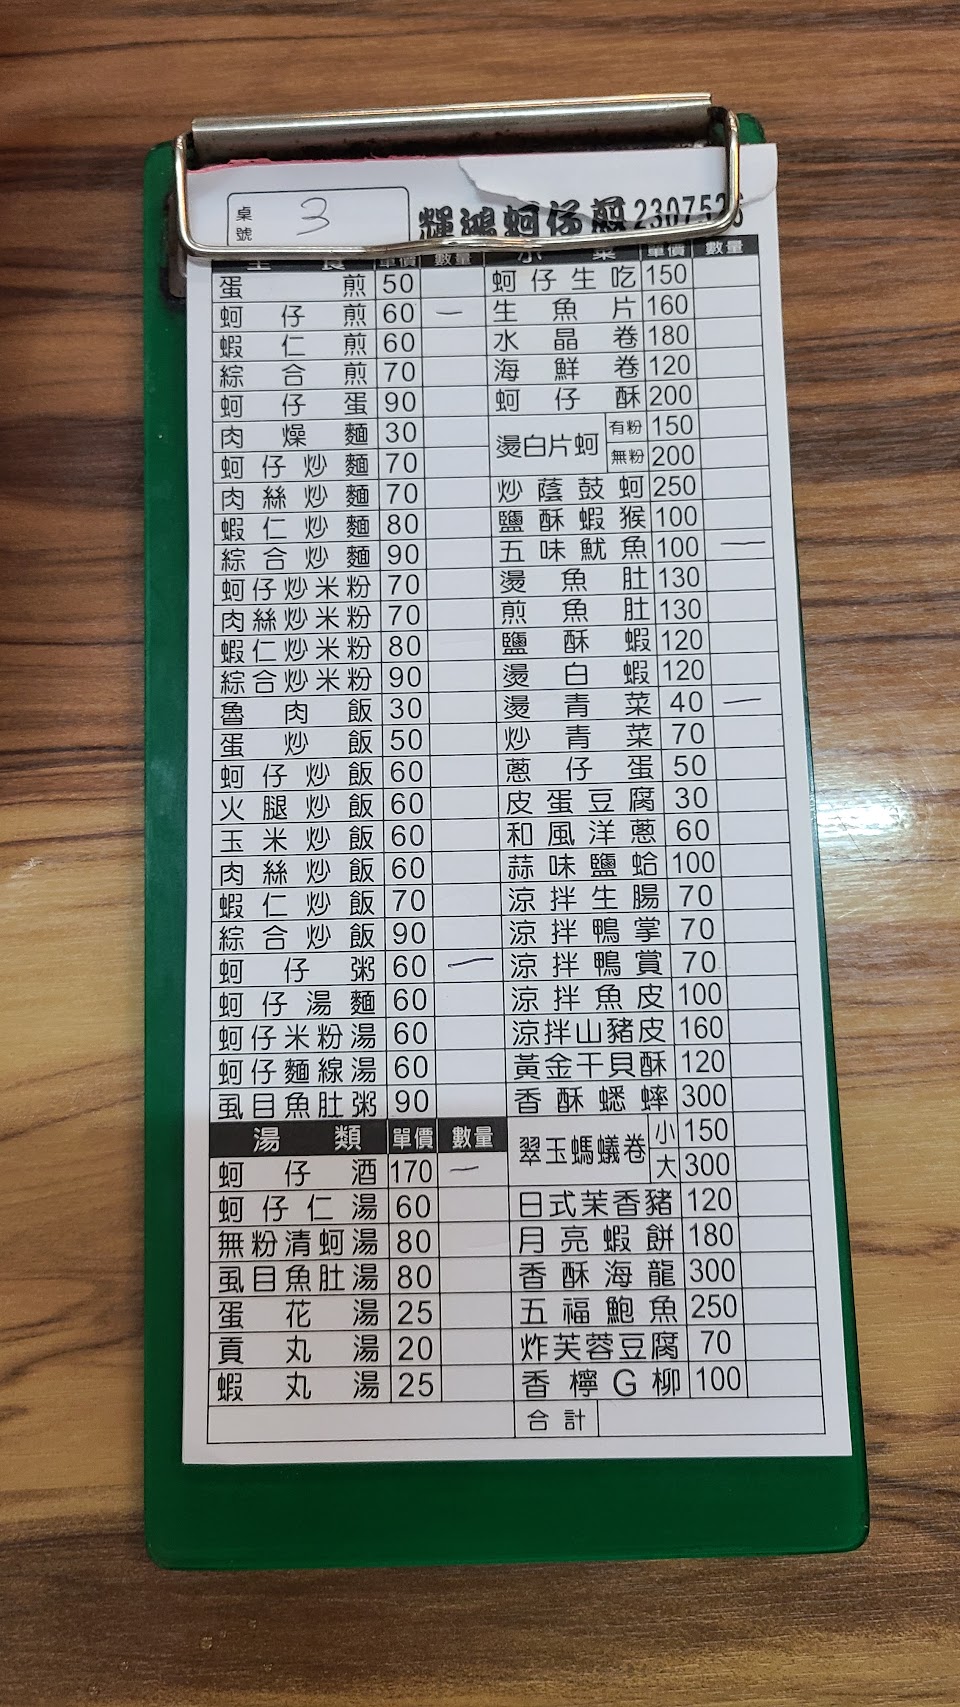 桌號 3
輝鴻蚵仔煎 230752
主食 單價 數量
蛋煎 50
蚵仔煎 60 一
蝦仁煎 60
綜合煎 70
蚵仔蛋 90
肉燥麵 30
蚵仔炒麵 70
肉絲炒麵 70
蝦仁炒麵 80
綜合炒麵 90
蚵仔炒米粉 70
肉絲炒米粉 70
蝦仁炒米粉 80
綜合炒米粉 90
魯肉飯 30
蛋炒飯 50
蚵仔炒飯 60
火腿炒飯 60
玉米炒飯 60
肉絲炒飯 60
蝦仁炒飯 70
綜合炒飯 90
蚵仔粥 60 一
蚵仔湯麵 60
蚵仔米粉湯 60
蚵仔麵線湯 60
虱目魚肚粥 90
湯類 單價 數量
蚵仔酒 170 一
蚵仔仁湯 60
無粉清蚵湯 80
虱目魚肚湯 80
蛋花湯 25
貢丸湯 20
蝦丸湯 25
小菜 單價 數量
蚵仔生吃 150
生魚片 160
水晶卷 180
海鮮卷 120
蚵仔酥 200
燙白片蚵 有粉 150
無粉 200
炒蔭鼓蚵 250
鹽酥蝦猴 100
五味魷魚 100 一
燙魚肚 130
煎魚肚 130
鹽酥蝦 120
燙白蝦 120
燙青菜 40 一
炒青菜 70
蔥仔蛋 50
皮蛋豆腐 30
和風洋蔥 60
蒜味鹽蛤 100
涼拌生腸 70
涼拌鴨掌 70
涼拌鴨賞 70
涼拌魚皮 100
涼拌山豬皮 160
黃金干貝酥 120
香酥蟋蟀 300
翠玉螞蟻卷 小 150
大 300
日式茉香豬 120
月亮蝦餅 180
香酥海龍 300
五福鮑魚 250
炸芙蓉豆腐 70
香檸G柳 100
合計